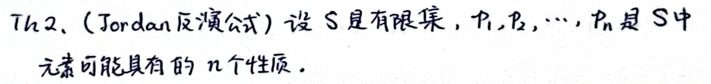 Th2. (Jordan反演公式) 设 S 是有限集, P₁, P₂, ⋯, Pₙ 是 S 中
元素可能具有的 n 个性质.